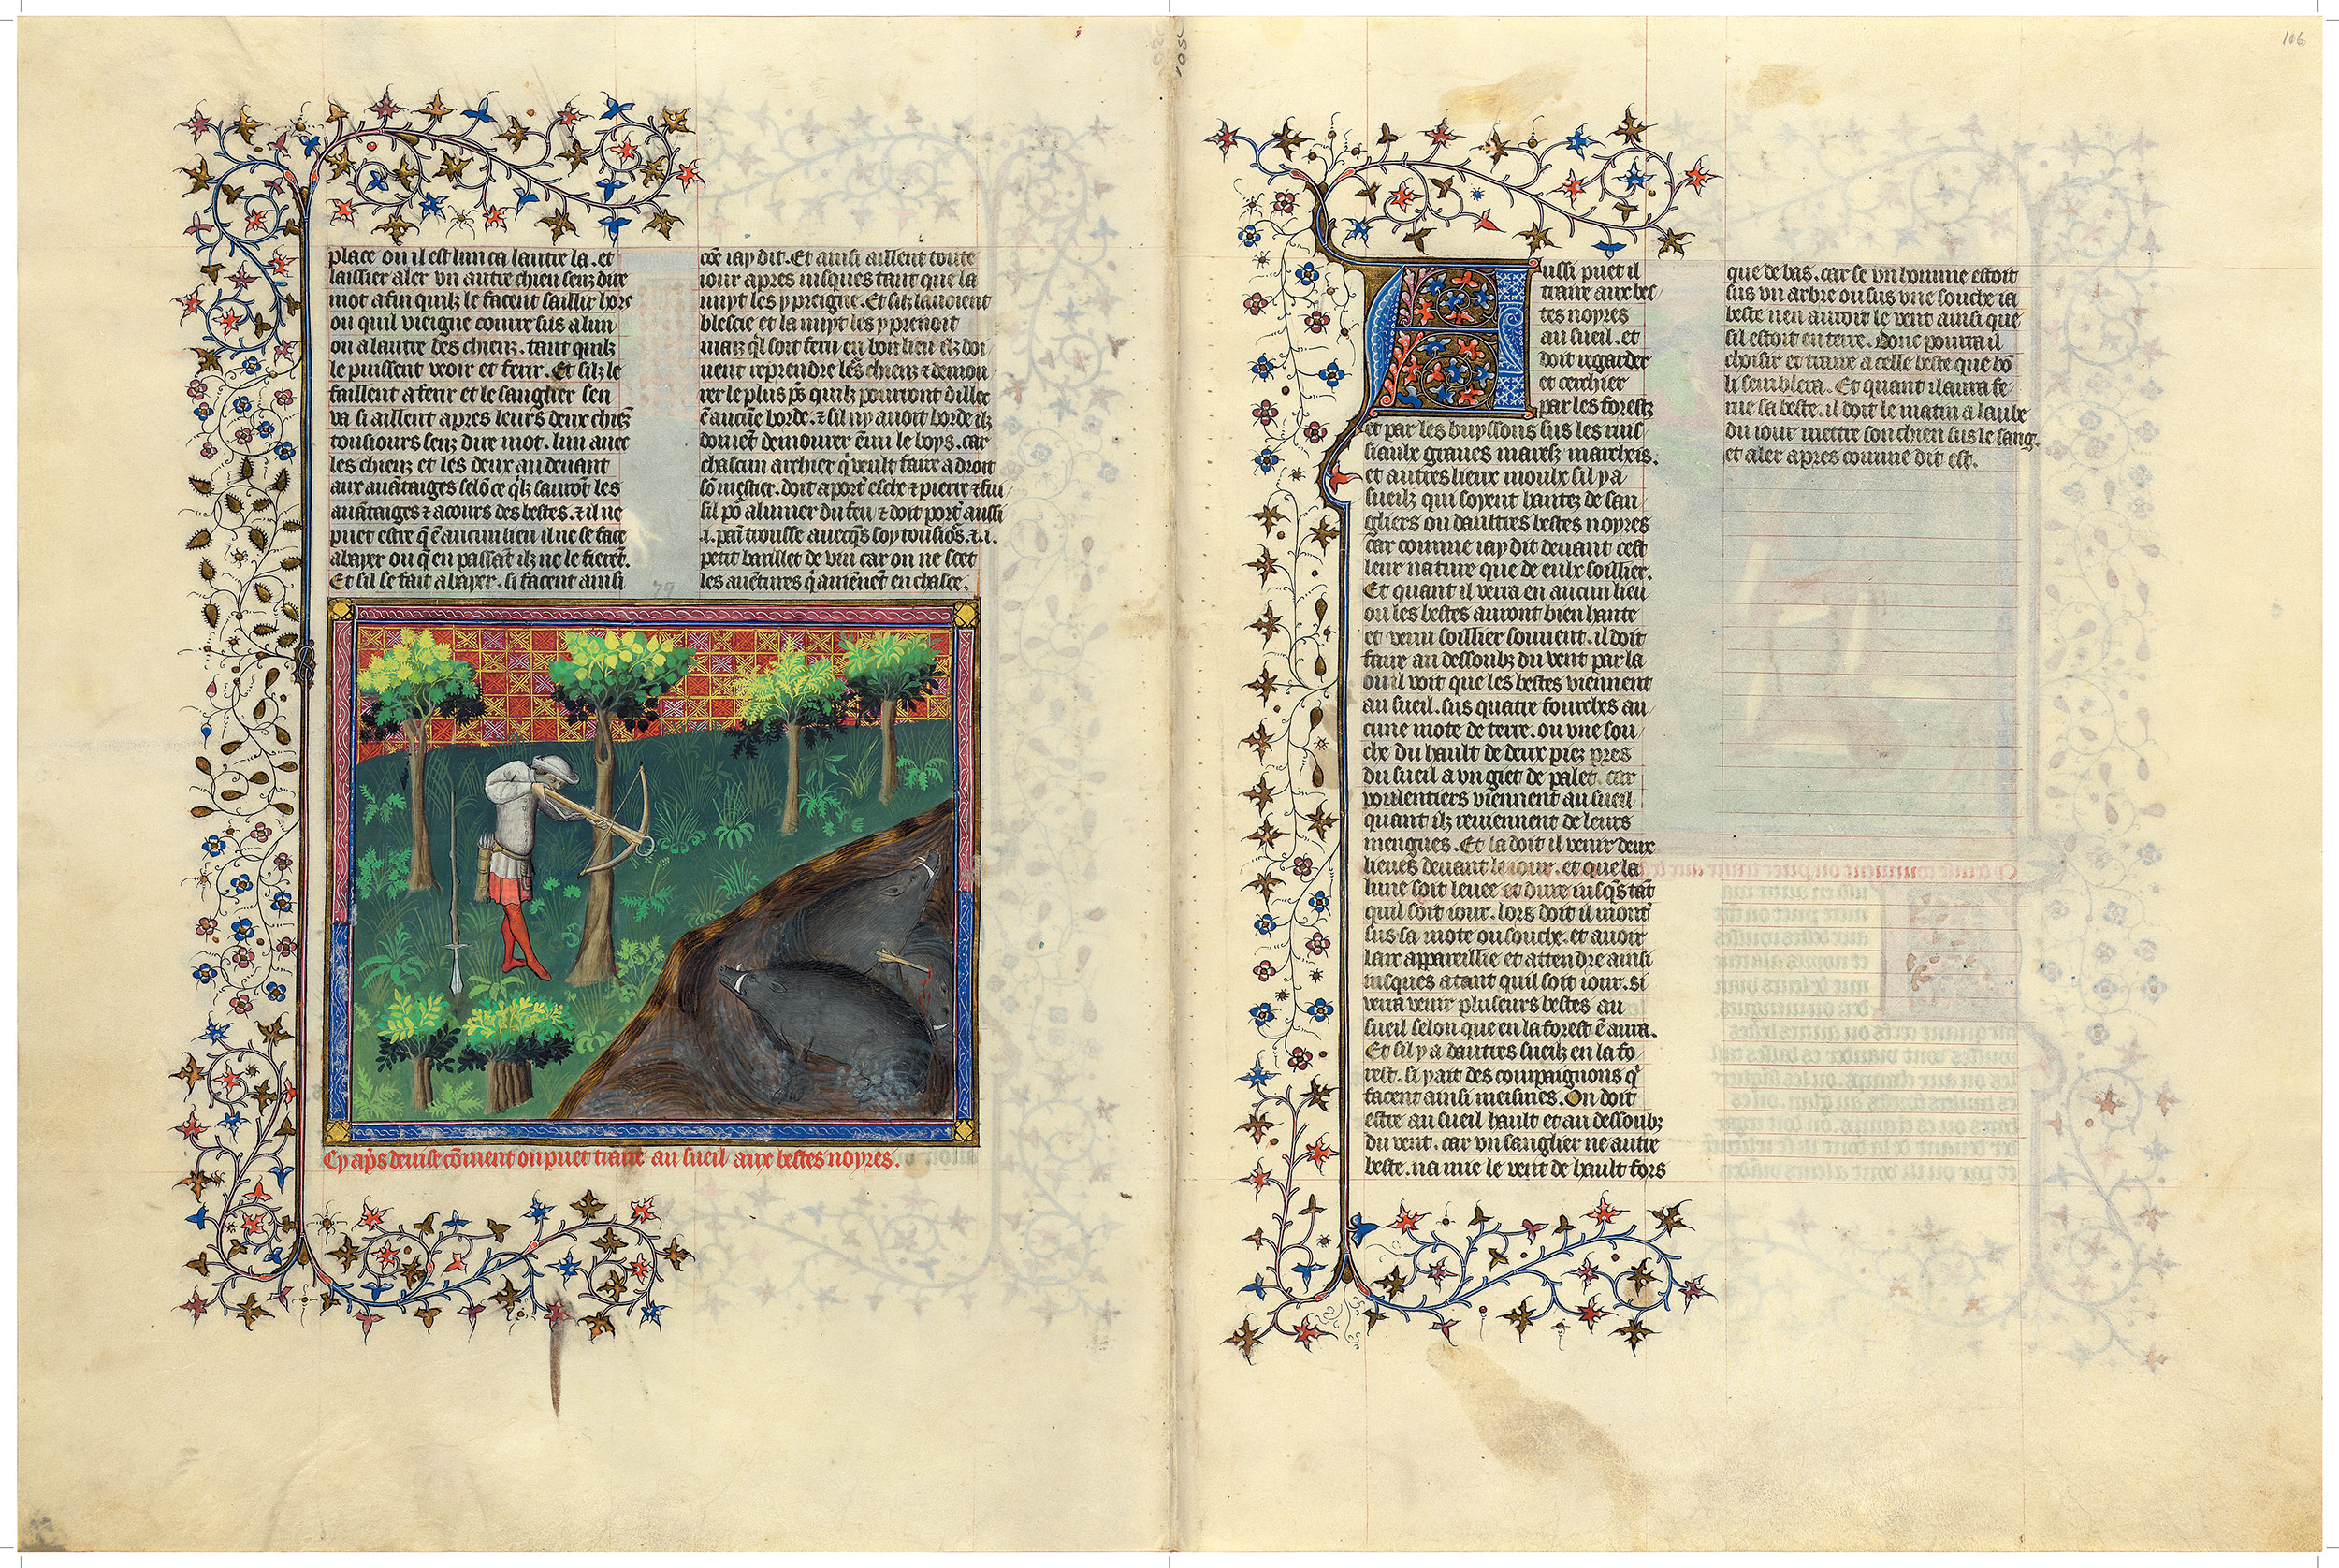 place ou il est lun ca lautre la. et
laissier aler vn autre chien senz dire
mot afin quilz le facent saillir hors
ou quil vieigne courre sus a lun
ou a lautre des chiens. tant quilz
le puissent veoir et ferir. Et silz le
faillent a ferir et le sanglier sen
va si aillent apres leurs deux chiēs
tousiours senz dire mot. lun auec
les chiens et les deux au deuant
aux auātaiges selō ce q̄lz sauront les
auātaiges ⁊ acours des bestes. ⁊ il ne
puet estre q̄ ē aucun lieu il ne se face
abayer ou q̄ en passāt ilz ne le fierēt.
Et sil se fait abayer. si facent ainsi
cōe iay dit. Et ainsi aillent toute
iour apres iusques tant que la
nuyt les y preigne. Et silz lauoient
blescie et la nuyt les y prenoit
maiz q̄l soit feru en bon lieu ilz doi
uent reprendre les chiens ⁊ demou
rer le plus p̄s quilz pourront dillec
ē aucūe borde. ⁊ sil ny auoit borde ilz
doiuēt demourer ēmi le boys. car
chascun archier q̄ veult faire a droit
sō mestier. doit aport̄ esche ⁊ pierre ⁊ fu
sil po᷑ alumer du feu ⁊ doit port̄ aussi
.i. pain trousse auecq̄s soy tousio᷑s. ⁊ .i.
petit barillet de vin car on ne scet
les auētures q̄ auiēnēt en chasce.
79
Cy ap̄s deuise cōment on puet traire au sueil aux bestes noyres.
105
106
Aussi puet il
traire aux bes
tes noyres
au sueil. et
doit regarder
et cerchier
par les forestz
et par les buyssons sus les ruis
siaulx graues marez marcheis.
et autres lieux moulx sil y a
sueilz qui soyent hantez de san
gliers ou daultres bestes noyres
car comme iay dit deuant cest
leur nature que de eulx soillier.
Et quant il verra en aucun lieu
ou les bestes auront bien hante
et venu soillier souuent. il doit
faire au dessoubz du vent par la
ou il voit que les bestes viennent
au sueil. sus quatre fourches au
cune mote de terre. ou vne sou
che du hault de deux piez pres
du sueil a vn giet de palet. car
voulentiers viennent au sueil
quant ilz reuiennent de leurs
mengues. Et la doit il venir deux
lieues deuant le iour. et que la
lune soit leuee et dure iusq̄s tāt
quil soit iour. lors doit il mont̄
sus sa mote ou souche. et auoir
larc appareillie et attendre ainsi
iusques atant quil soit iour. si
verra venir pluseurs bestes au
sueil selon que en la forest ē aura.
Et sil y a dautres sueilz en la fo
rest. si y ait des compaignons q̄
facent ainsi meismes. On doit
estre au sueil hault et au dessoubz
du vent. car vn sanglier ne autre
beste. na mie le vent de hault fors
que de bas. car se vn homme estoit
sus vn arbre ou sus vne souche ia
beste nen auroit le vent ainsi que
sil estoit en terre. Donc pourra il
choisir et traire a celle beste que bō
li semblera. Et quant il aura fe
rue sa beste. il doit le matin a laube
du iour mettre son chien sus le sang.
et aler apres comme dit est.